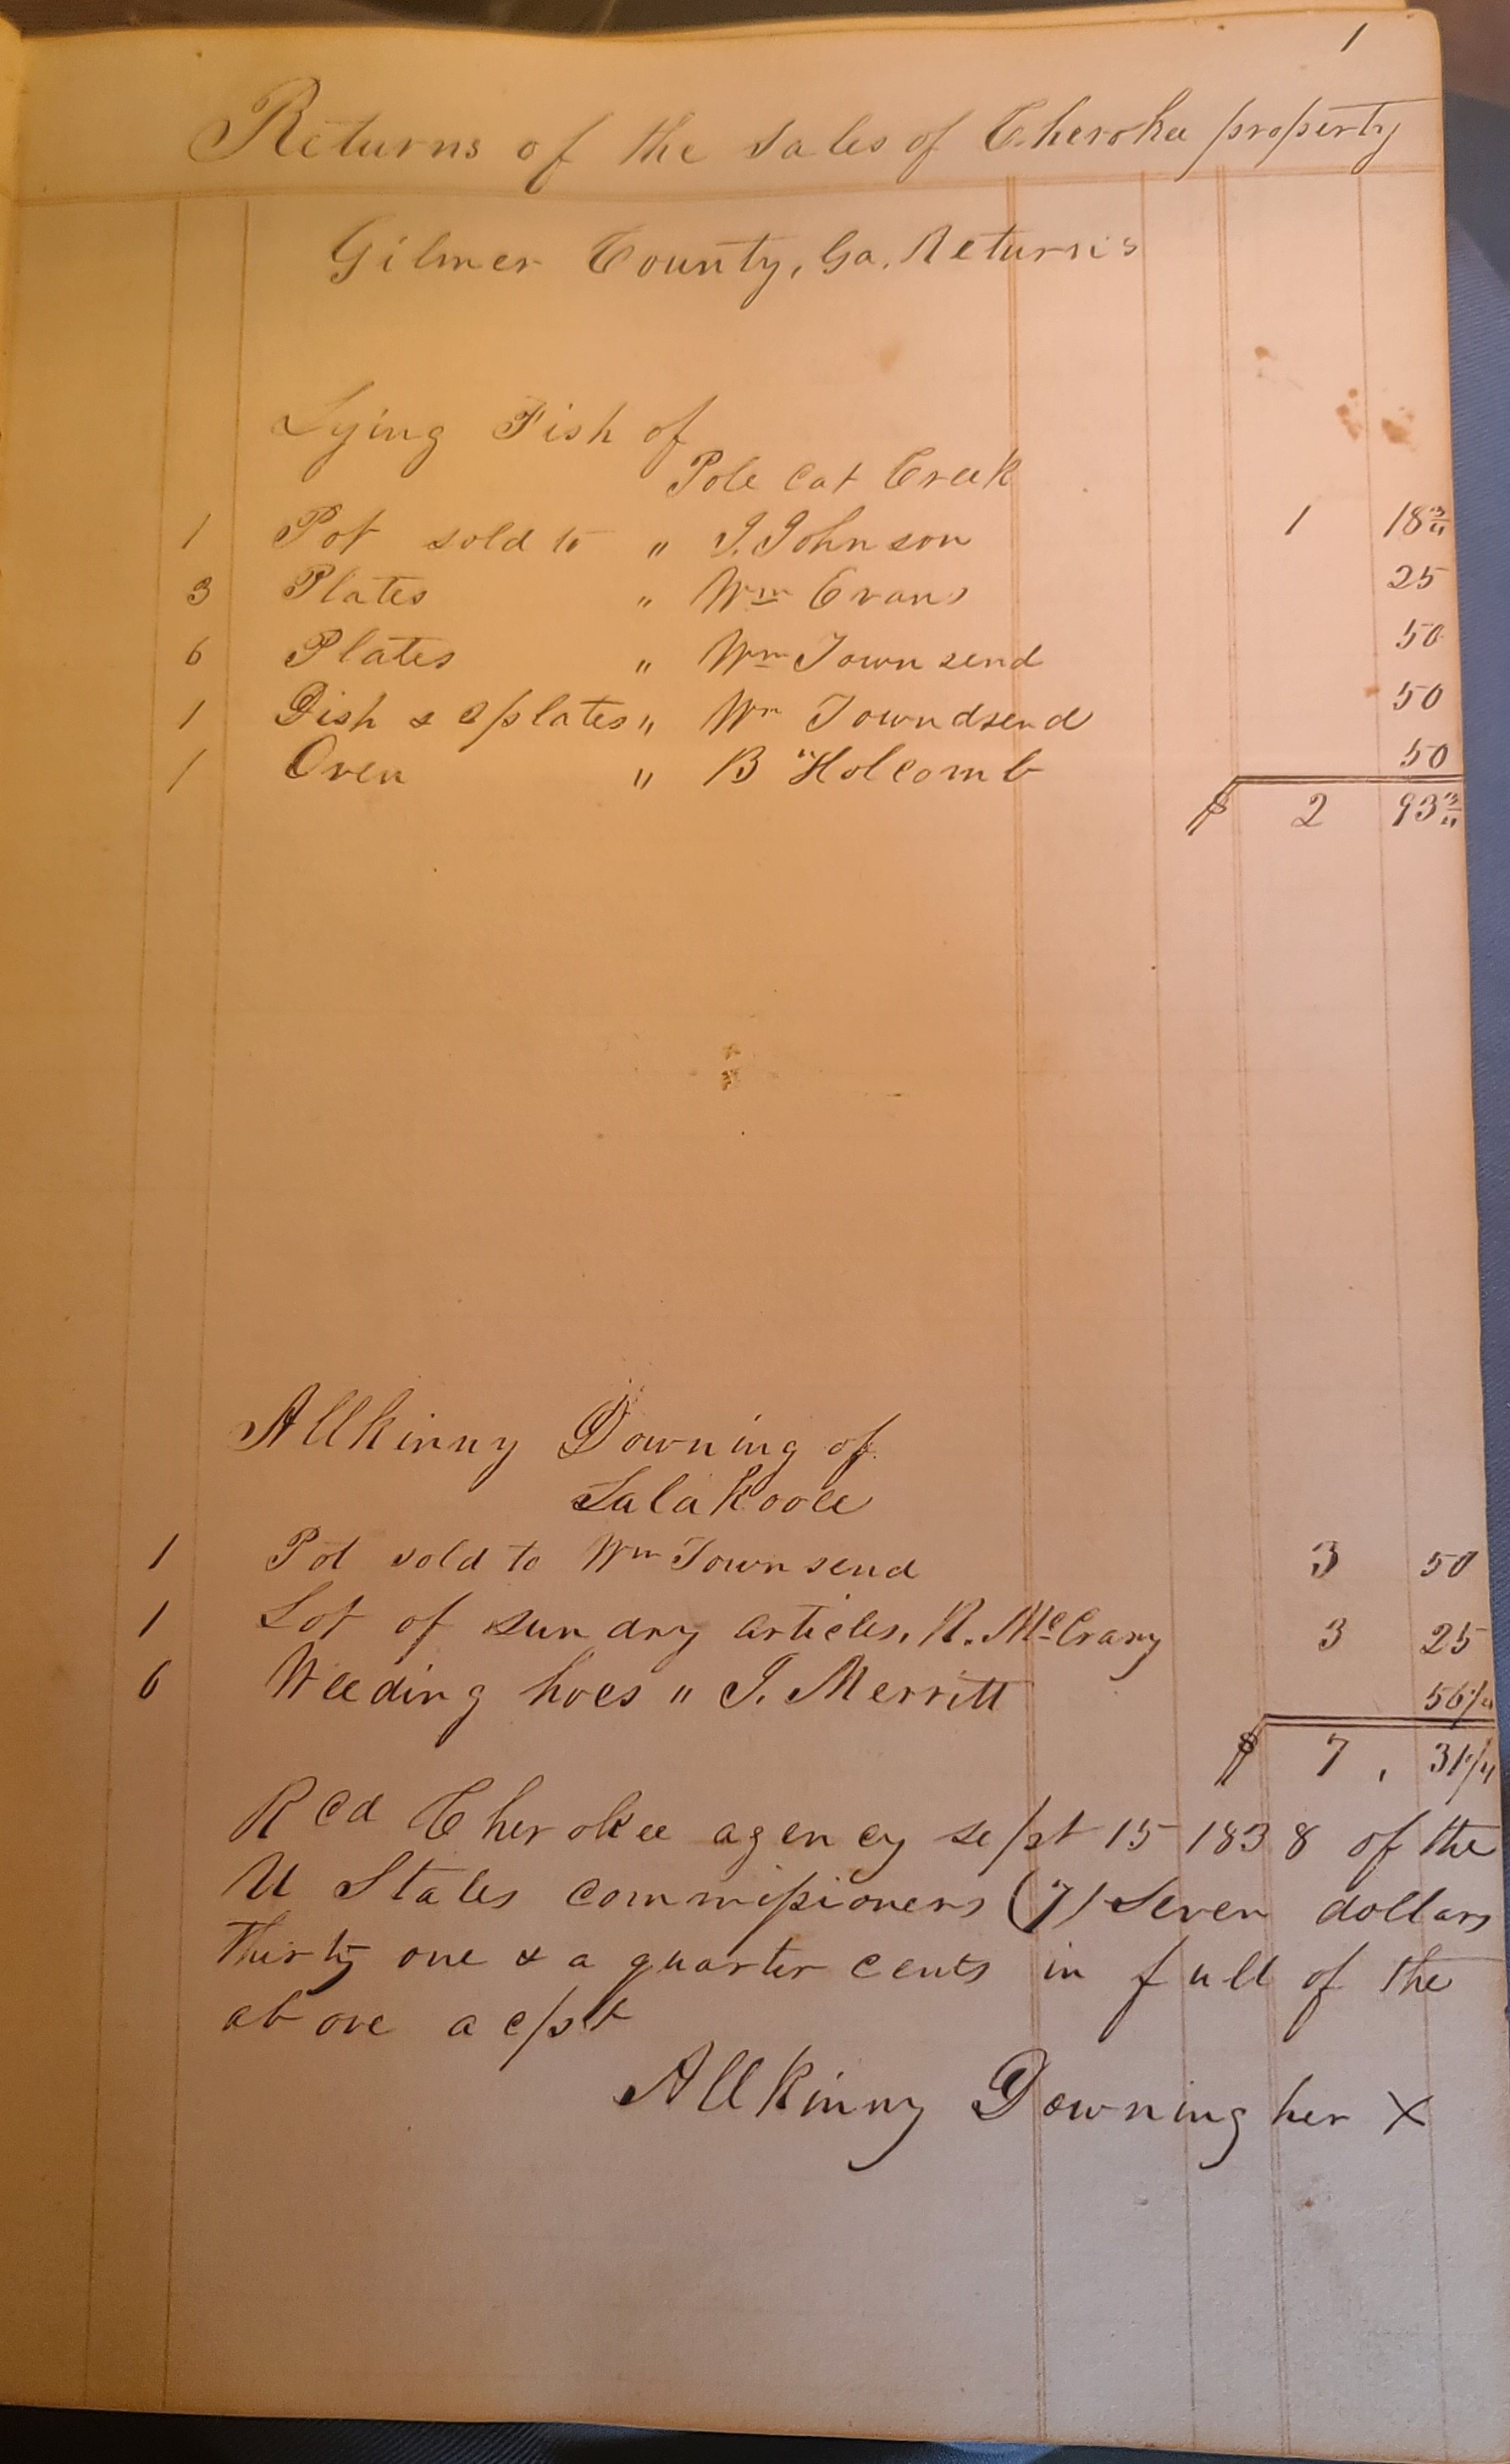 1
Returns of the sales of Cherokee property
Gilmer County, Ga. Returns
Lying Fish of
Pole Cat Creek
1 Pot sold to " J. Johnson 1 18 3/4
3 Plates " Wm Evans 25
6 Plates " Wm Townsend 50
1 Dish & plates " Wm Towndsend 50
1 Oven " B Holcomb 50
$ 2 93 3/4
Allkinny Downing of
1 Pot sold to Wm Townsend 3 50
1 Lot of sundry articles, R. McCrary 3 25
6 Weeding hoes " J. Merritt 56 1/4
$ 7, 31 1/4
Recd Cherokee agency sept 15 1838 of the
U States commissioners (7) Seven dollars
Thirty one & a quarter cents in full of the
above acpt
Allkinny Downing her X